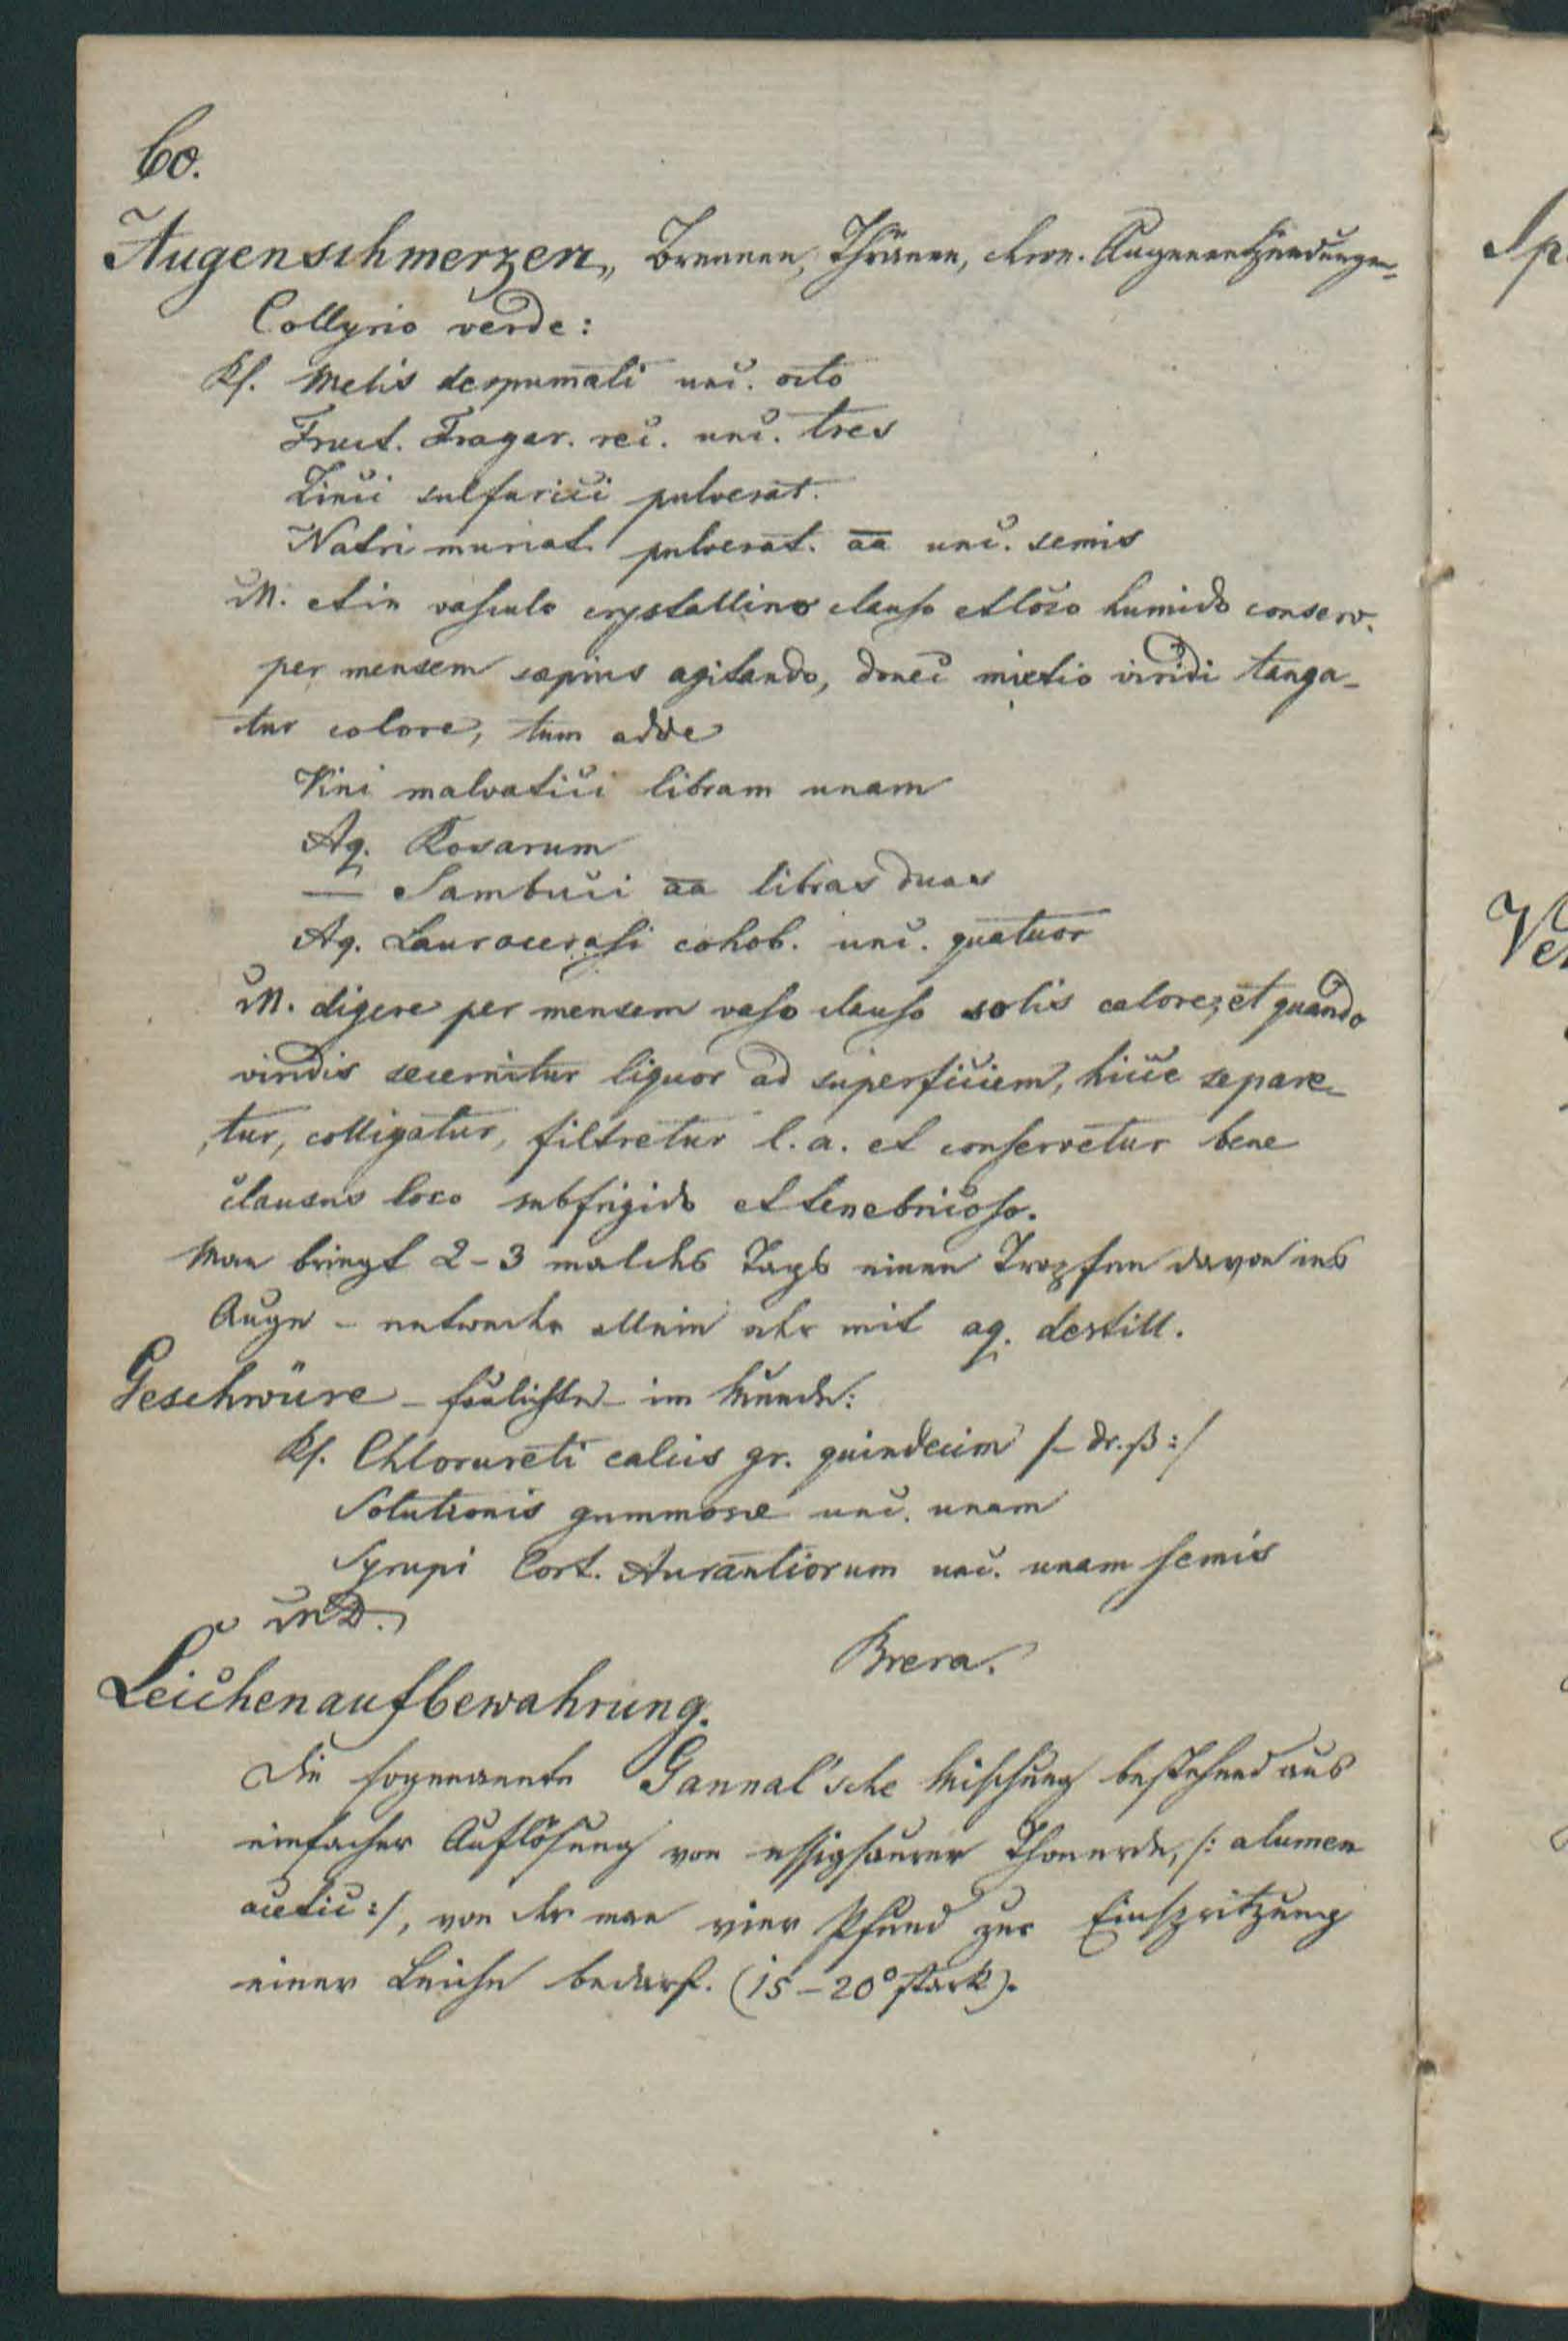 60.
Augenschmerzen, Brennen, Thränen, chron. Augenentzündungen.
Collyrio verde:
Rf. Melis despumati unc. octo
Fruct. Fragar. rec. unc. tres
Zinci sulfurici pulverat.
Natri muriat. pulverat. aa unc. semis
M. et in vasculo crystallino clauso et loco humido conserv.
per mensem sæpius agitando, donec mixtio viridi tanga-
tur colore, tum adde
Vini malvatici libram unam
Aq. Rosarum
— Sambuci aa libras duas
Aq. Laurocerasi cohob. unc. quatuor
M. digere per mensem vaso clauso solis calore, et quando
viridis secernitur liquor ad superficiem, hicce separe-
tur, colligatur, filtretur l. a. et conservetur bene
clausus loco subfrigido et tenebricoso.
Man bringt 2-3 mal des Tags einen Tropfen davon ins
Auge - entweder allein oder mit aq. destill.
Geschwüre - faulichte - im Munde:
Rf. Chlorureti calcis gr. quindecim /- dr. ß :/
Solutionis gummosæ unc. unam
Syrupi Cort. Aurantiorum unc. unam semis
MD.
Brera.
Leichenaufbewahrung.
Die sogenannte Gannal'sche Mischung bestehend aus
einfacher Auflösung von essigsaurer Thonerde, /: alumen
acetic :/, von der man vier Pfund zur Einspritzung
einer Leiche bedarf. (15-20° stark).
Sp
Ve